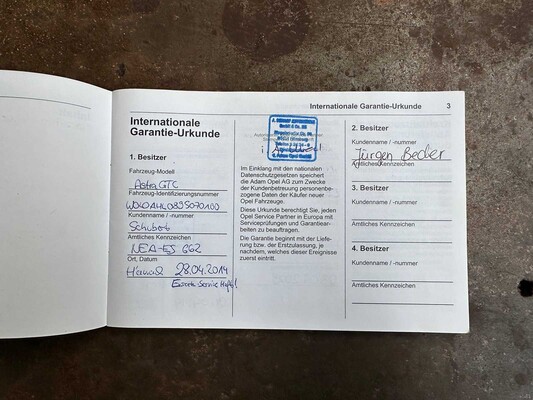 Internationale Garantie-Urkunde 3
Internationale
Garantie-Urkunde
1. Besitzer
Fahrzeug-Modell
Astra GTC
Fahrzeug-Identifizierungsnummer
Kundenname / -nummer
Schubert
Amtliches Kennzeichen
NEA-ES 662
Ort, Datum
28.04.2014
GmbH & Co. KG
Im Einklang mit den nationalen
Datenschutzgesetzen speichert
die Adam Opel AG zum Zwecke
der Kundenbetreuung personenbe-
zogene Daten der Käufer neuer
Opel Fahrzeuge.
Diese Urkunde berechtigt Sie, jeden
Opel Service Partner in Europa mit
Serviceprüfungen und Garantiear-
beiten zu beauftragen.
Die Garantie beginnt mit der Liefe-
rung bzw. der Erstzulassung, je
nachdem, welches dieser Ereignisse
zuerst eintritt.
2. Besitzer
Kundenname / -nummer
Jürgen Becker
Amtliches Kennzeichen
3. Besitzer
Kundenname / -nummer
Amtliches Kennzeichen
4. Besitzer
Kundenname / -nummer
Amtliches Kennzeichen